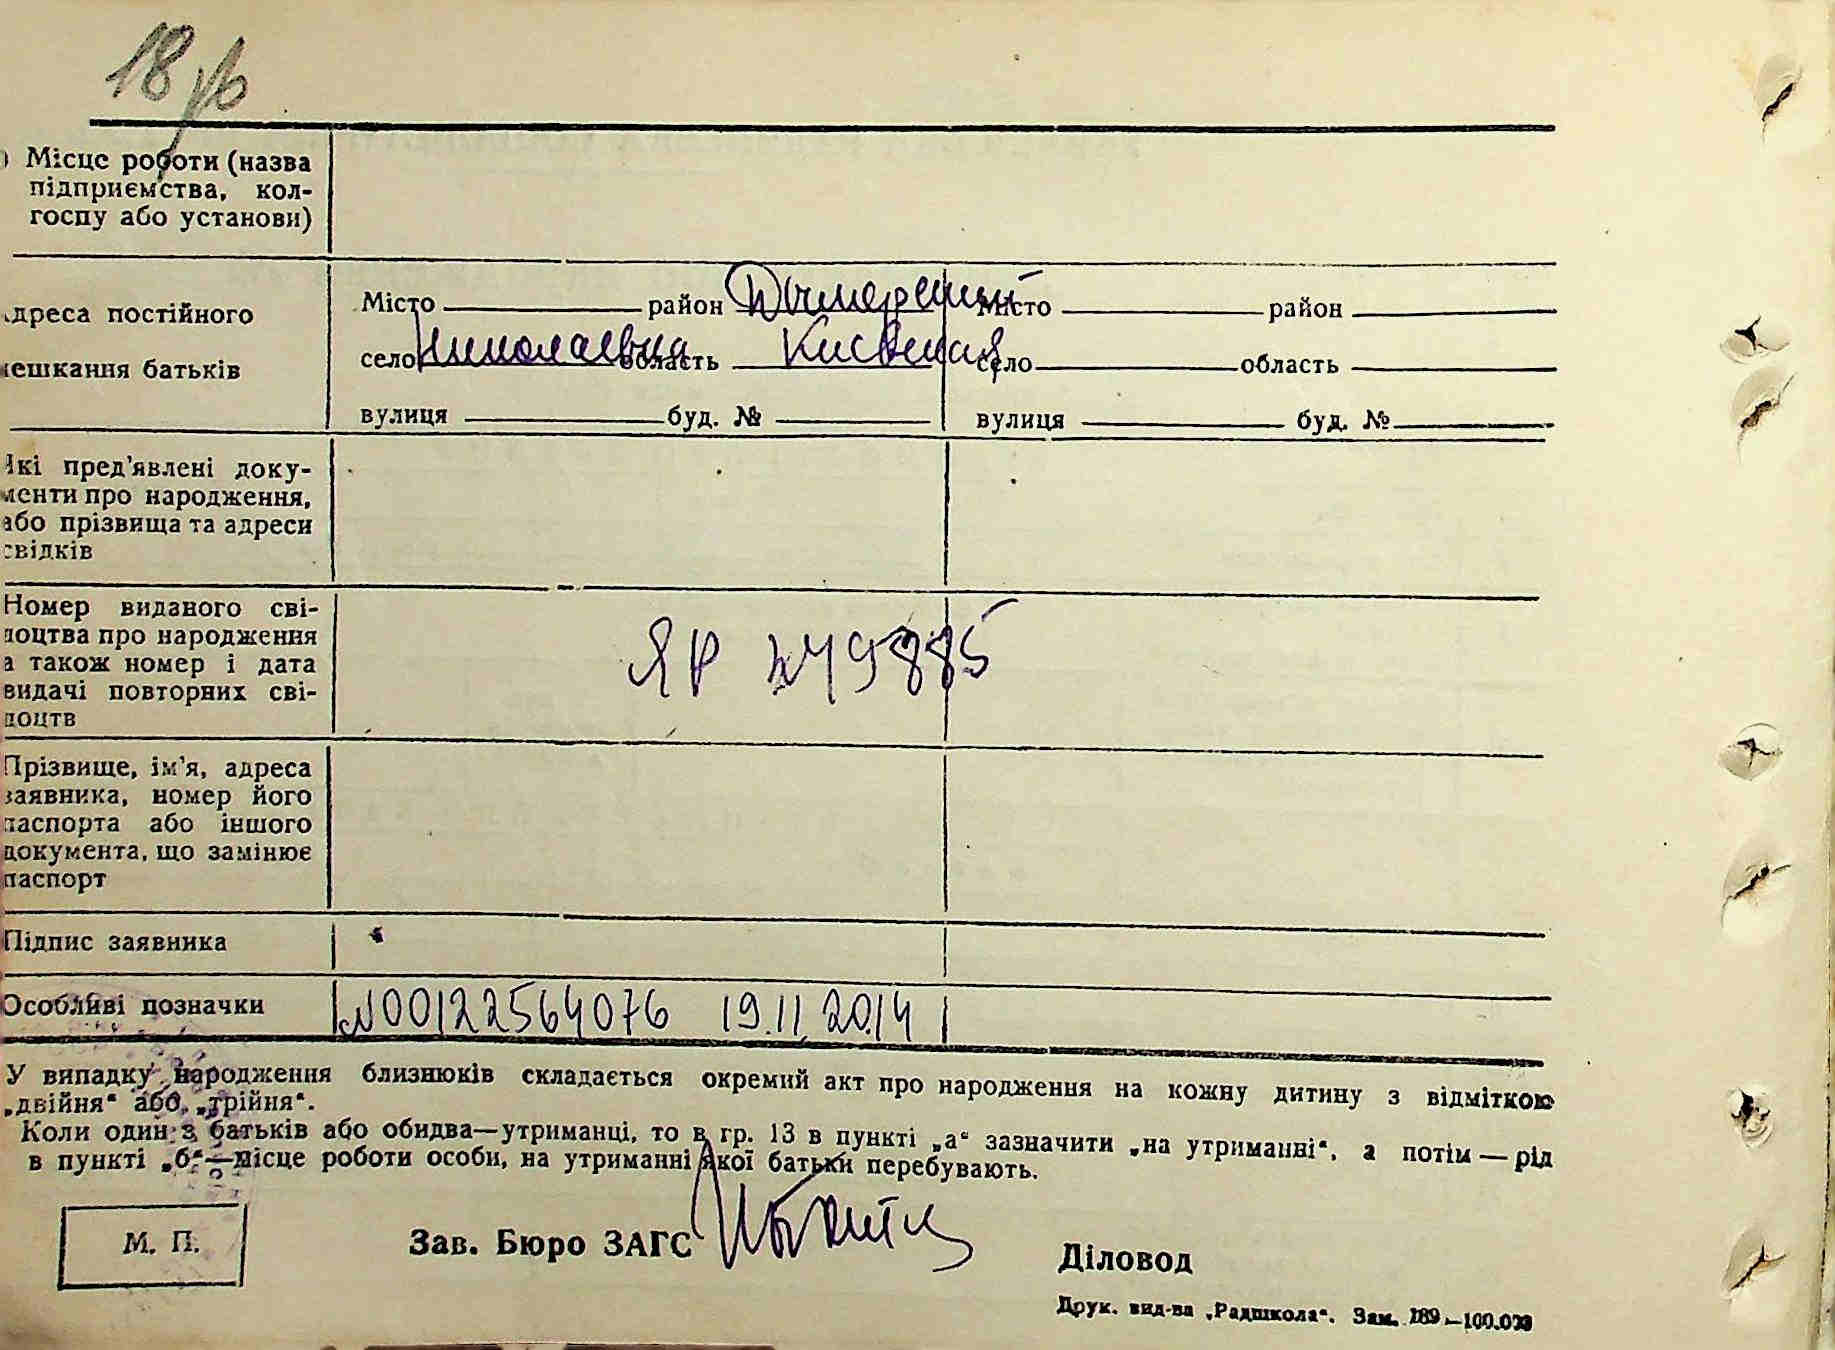 18
) Місце роботи (назва
підприємства, кол-
госпу або установи)
Місто район Дымерский Місто район
дреса постійного
село Николаевка область Киевская село область
ешкання батьків
вулиця буд. № вулиця буд. №
Які пред'явлені доку-
менти про народження,
або прізвища та адреси
свідків
Номер виданого сві-
доцтва про народження
а також номер і дата
видачі повторних сві-
доцтв
ЯР 249885
Прізвище, ім'я, адреса
заявника, номер його
паспорта або іншого
документа, що замінює
паспорт
Підпис заявника
Особливі позначки
N00122564076 19.11.2014
У випадку народження близнюків складається окремий акт про народження на кожну дитину з відміткою
„двійня“ або „трійня“.
Коли один з батьків або обидва—утриманці, то в гр. 13 в пункті „а“ зазначити „на утриманні“, а потім — рід
в пункті „б“—місце роботи особи, на утриманні якої батьки перебувають.
М. П.
Зав. Бюро ЗАГС
Діловод
Друк. вид-ва „Радшкола“. Зам. 189—100.000